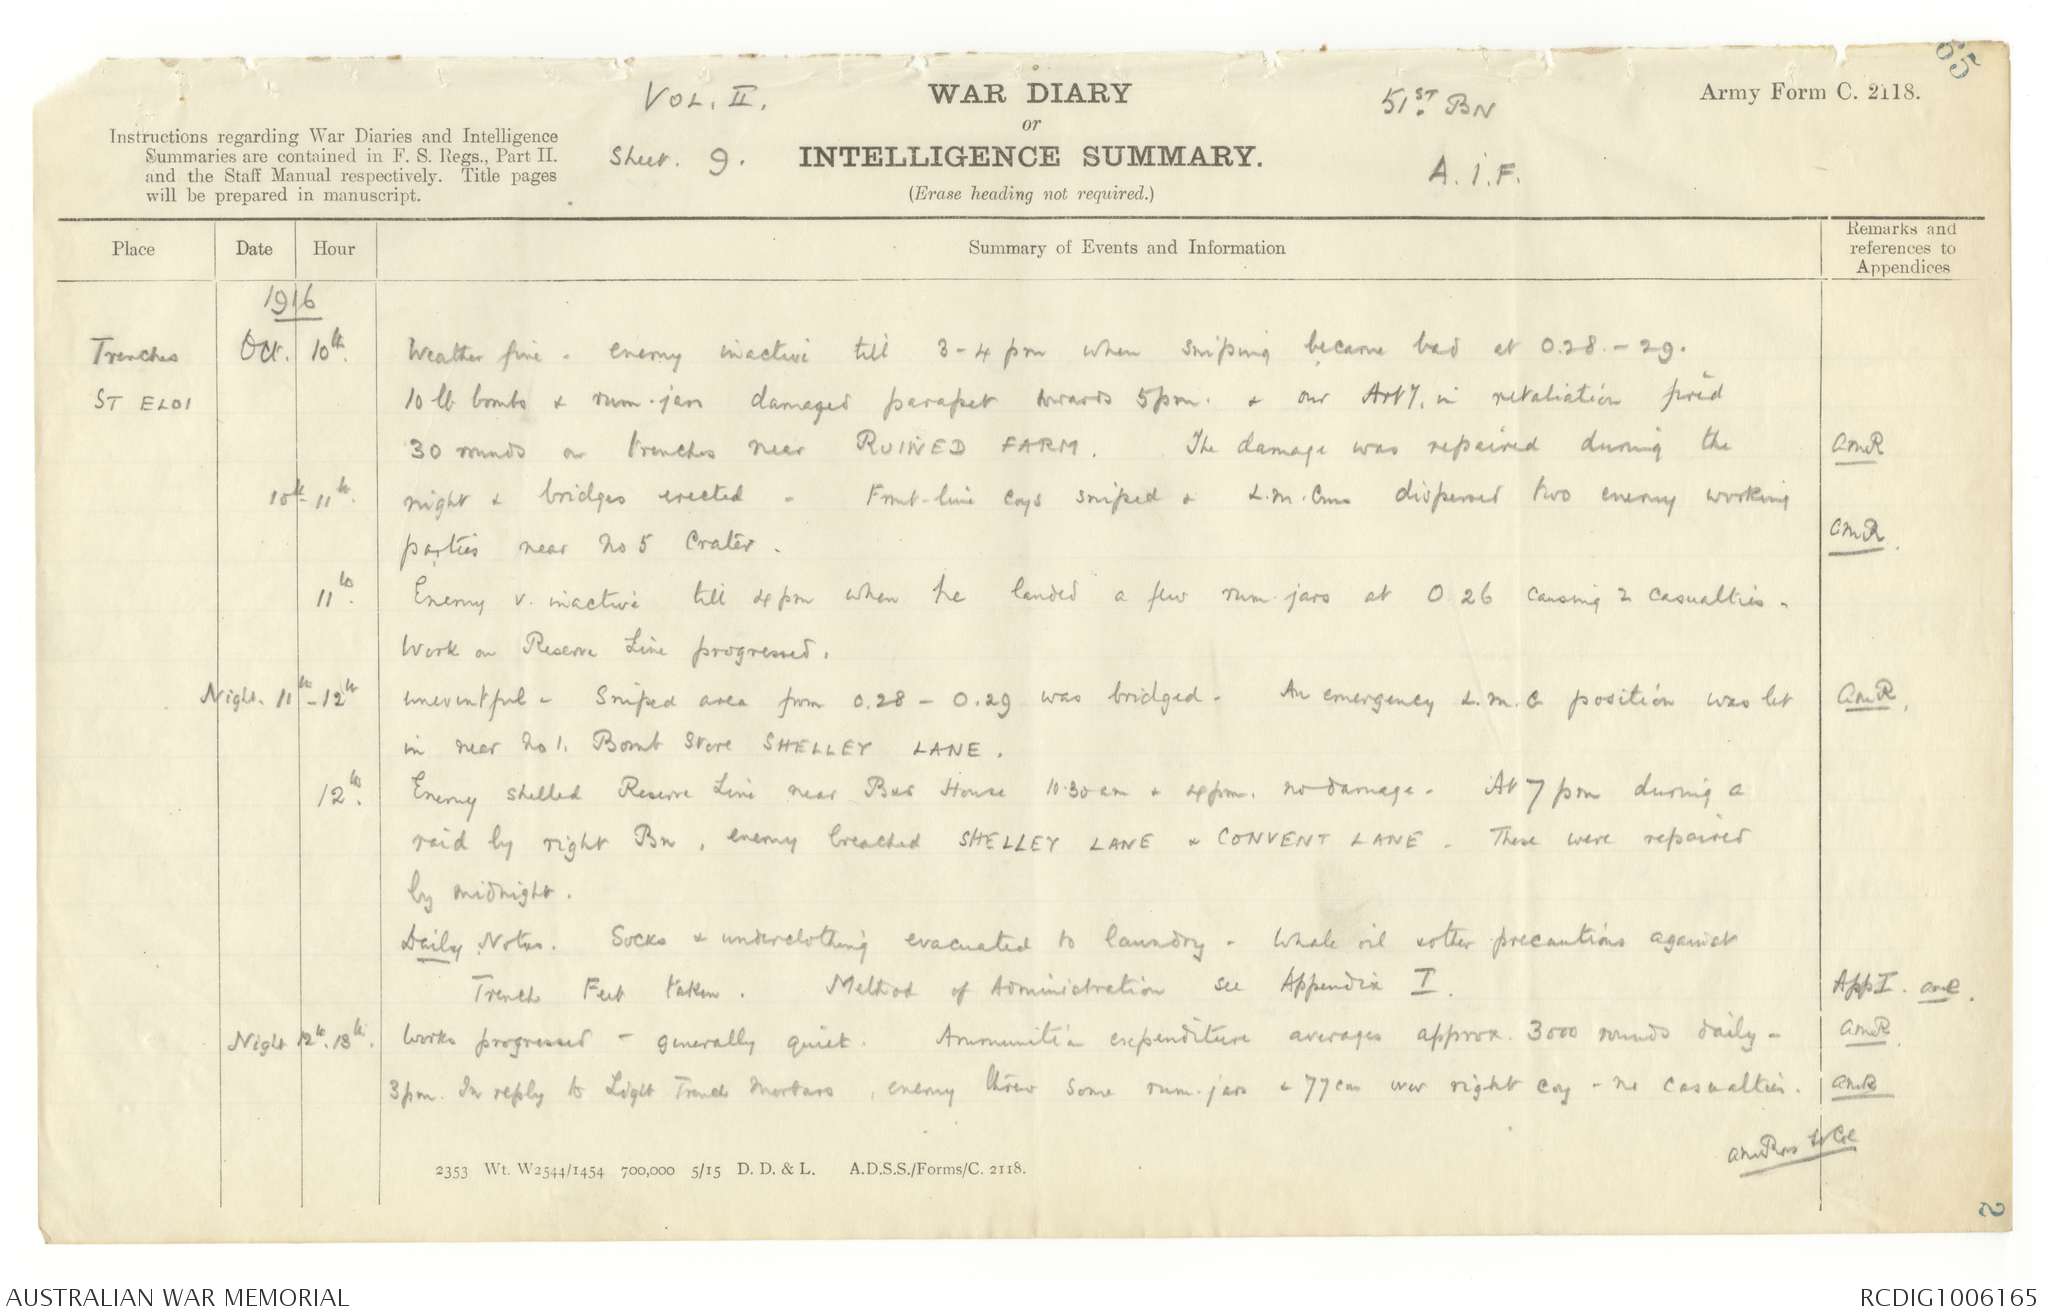 65
VOL. II.
WAR DIARY
51ST BN
Army Form C. 2118.
or
Instructions regarding War Diaries and Intelligence
Summaries are contained in F. S. Regs., Part II.
and the Staff Manual respectively. Title pages
will be prepared in manuscript.
Sheet. 9.
INTELLIGENCE SUMMARY.
A.I.F.
(Erase heading not required.)
Place Date Hour Summary of Events and Information Remarks and references to Appendices
1916
Trenches Oct. 10th. Weather fine - enemy inactive till 3-4 pm when sniping became bad at 0.28.-29.
ST ELOI 10 lb bombs & rum-jars damaged parapet towards 5pm. & our Arty. in retaliation fired
30 rounds on trenches near RUINED FARM. The damage was repaired during the AMR
10th-11th. night & bridges erected - Front-line coys sniped & L.M. Guns dispersed two enemy working
parties near No 5 Crater. AMR.
11th. Enemy v. inactive till 4pm when he landed a few rum-jars at O 26 causing 2 casualties -
Work on Reserve Line progressed.
Night. 11th-12th uneventful - Sniped area from 0.28 - 0.29 was bridged - An emergency L.M.G position was let AMR.
in near No 1. Bomb Store SHELLEY LANE.
12th. Enemy shelled Reserve Line near Bus House 10.30 am & 4pm. no damage - At 7 pm during a
raid by right Bn, enemy breached SHELLEY LANE & CONVENT LANE - These were repaired
by midnight.
Daily Notes. Socks & underclothing evacuated to laundry - Whale oil & other precautions against
Trench Feet taken. Method of Administration see Appendix I. App I. AMR.
Night 12th.13th. Works progressed - generally quiet. Ammunition expenditure averages approx. 3000 rounds daily - AMR
3pm. In reply to Light Trench Mortars, enemy threw some rum-jars & 77cm over right coy - no casualties. AMR
AMRoss Lt Col
2353 Wt. W2544/1454 700,000 5/15 D. D. & L. A.D.S.S./Forms/C. 2118.
2
AUSTRALIAN WAR MEMORIAL
RCDIG1006165